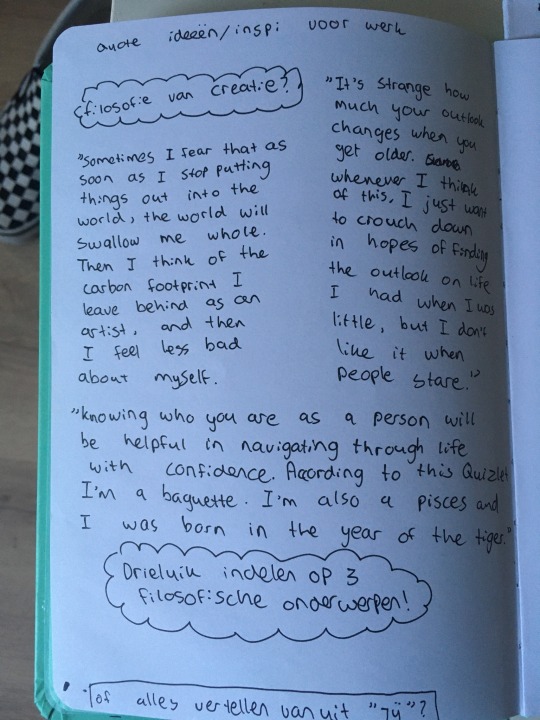 quote ideeën/inspi voor werk
filosofie van creatie?
"Sometimes I fear that as
soon as I stop putting
things out into the
world, the world will
swallow me whole.
Then I think of the
carbon footprint I
leave behind as an
artist, and then
I feel less bad
about myself.
"It's strange how
much your outlook
changes when you
get older.
whenever I think
of this, I just want
to crouch down
in hopes of finding
the outlook on life
I had when I was
little, but I don't
like it when
people stare."
"knowing who you are as a person will
be helpful in navigating through life
with confidence. Acording to this Quizlet
I'm a baguette. I'm also a pisces and
I was born in the year of the tiger."
Drieluik indelen op 3
filosofische onderwerpen!
of alles vertellen vanuit "jij"?